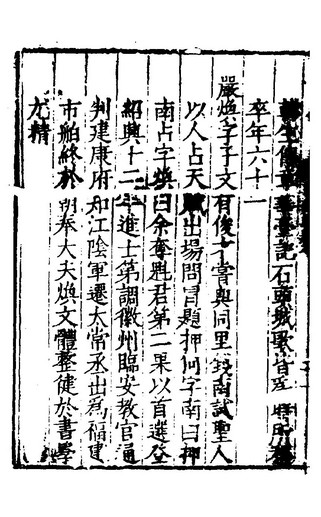 記石頭城歌皆時所稱
卒年六十一
嚴煥字子文有俊才嘗與同里錢南試聖人
以人占天賦出場問冒題押何字南曰押
南占字煥曰余奪魁君第二果以首選登
紹興十二年進士第調徽州臨安教官通
判建康府知江陰軍遷太常丞出為福建
市舶終於朝奉大夫煥文體整健於書學
尤精